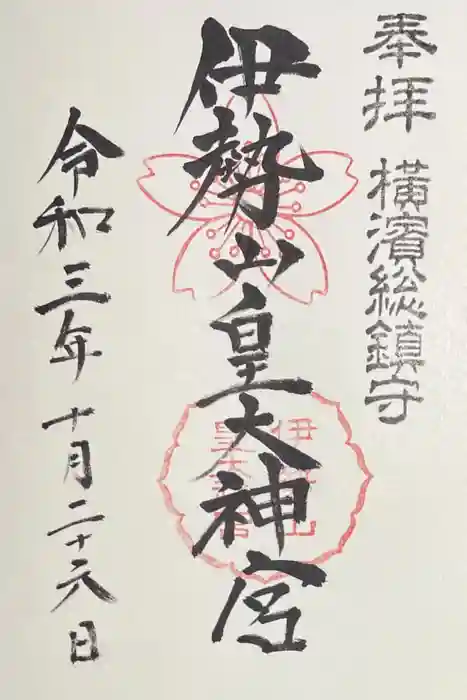 奉拝 横濱総鎮守
伊勢山皇大神宮
令和三年 十月二十六日